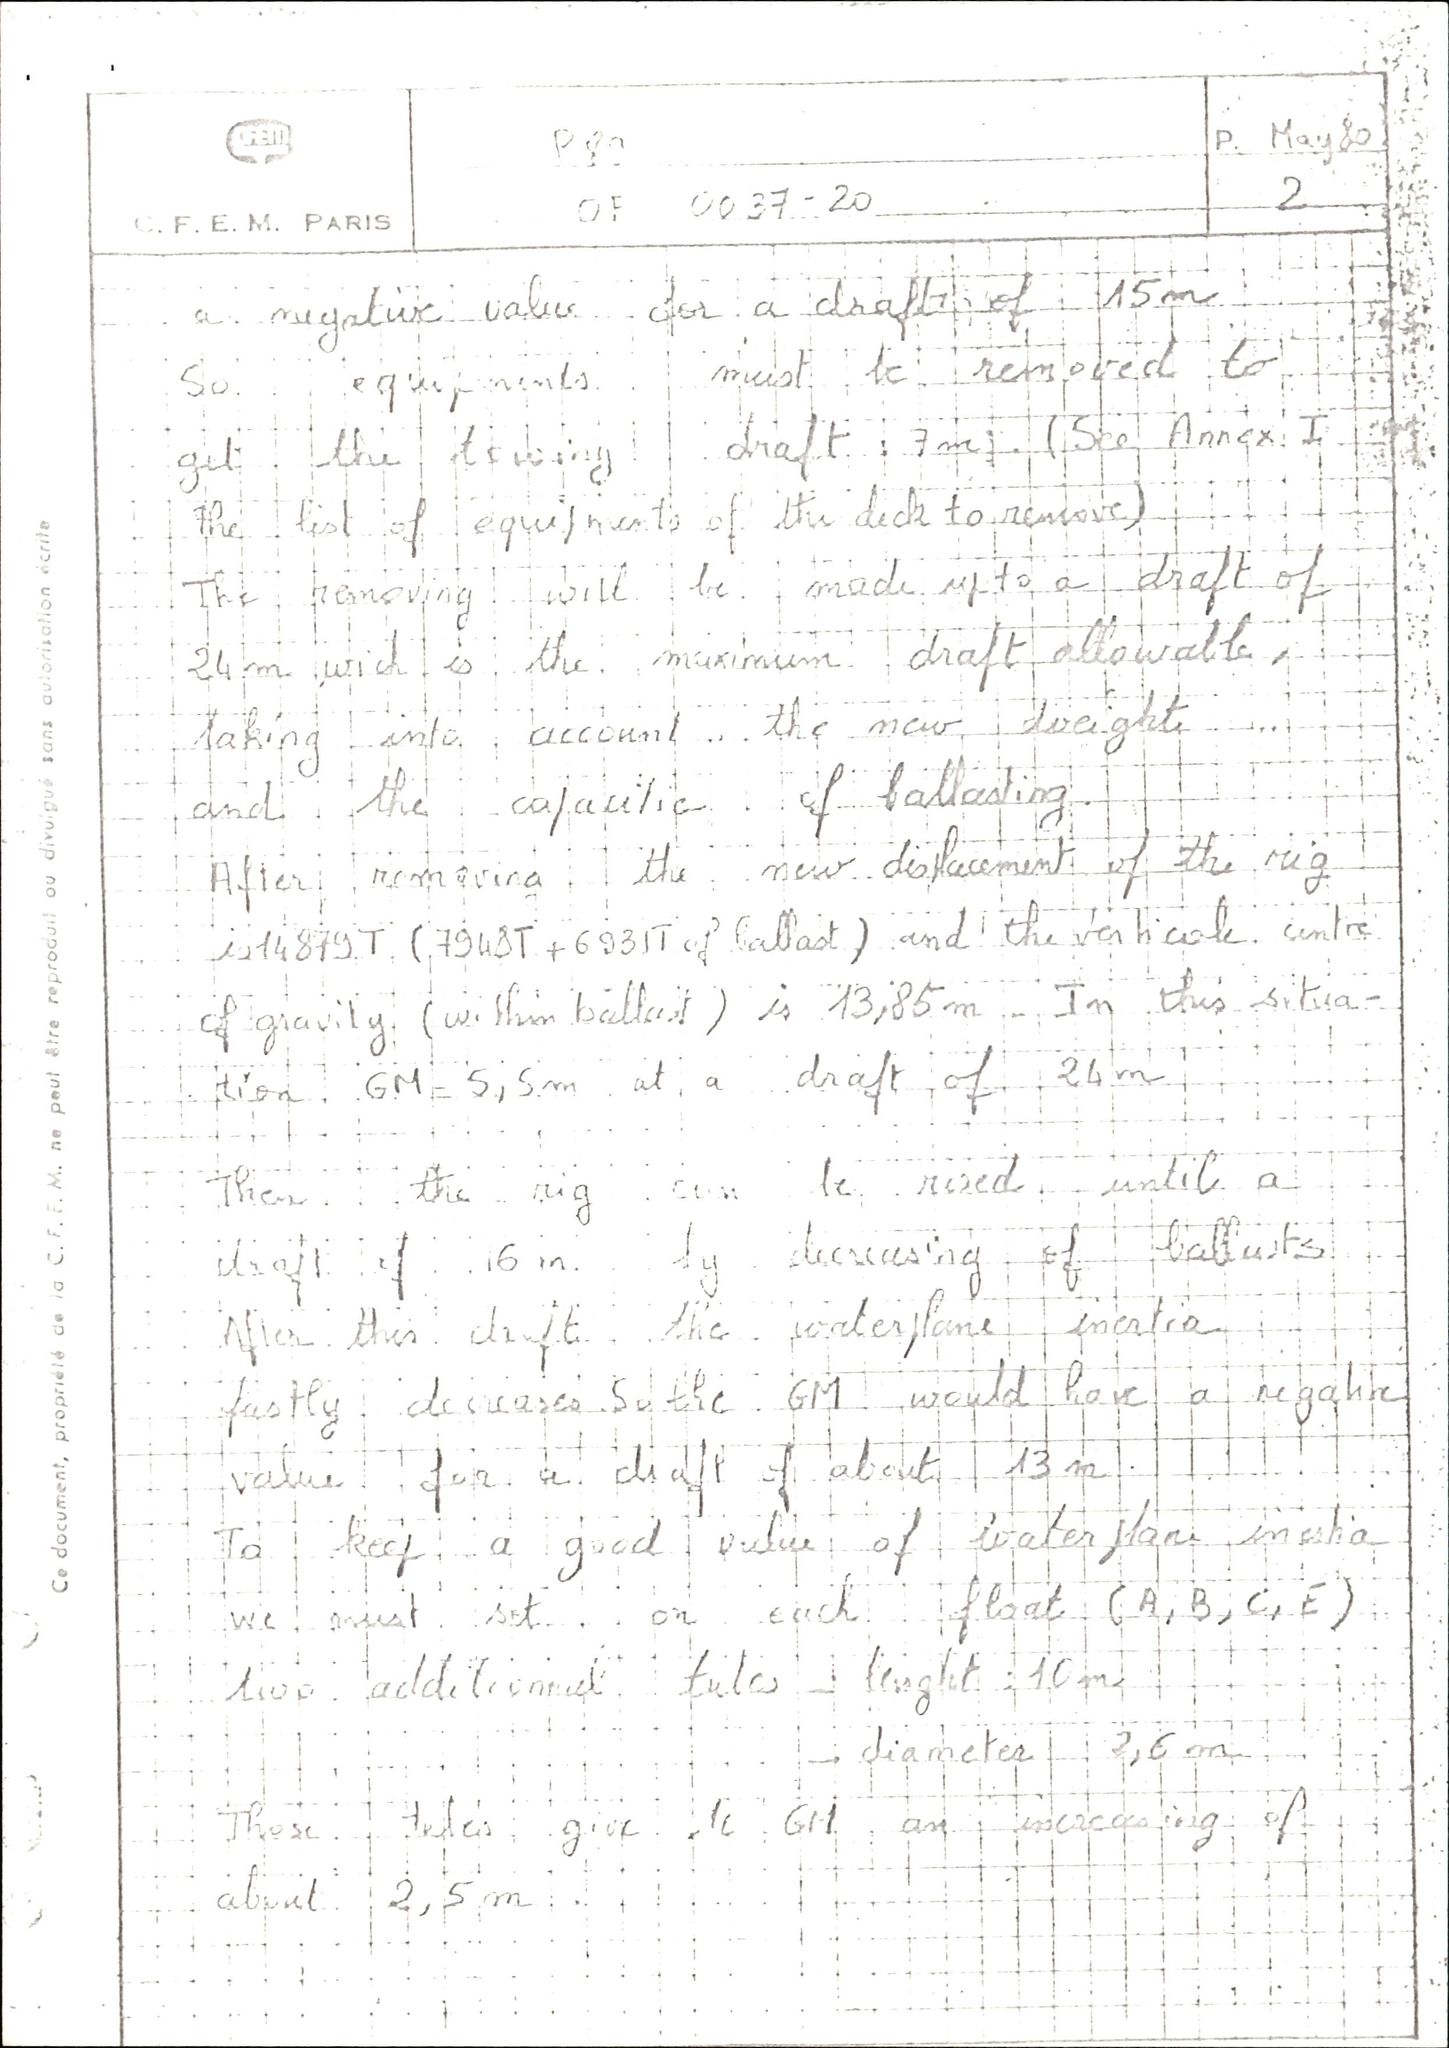 C.F.E.M. PARIS
OF 0037-20
P. May 80
2
a negative value for a draft of 15m
So equipments must be removed to
get the towing draft : 7m. (See Annex I
the list of equipments of the deck to remove)
The removing will be made up to a draft of
24m wich is the maximum draft allowable,
taking into account the new weight
and the capacitie of ballasting.
After removing the new displacement of the rig
is 14879T (7948T + 6931T of ballast) and the verticale centre
of gravity (within ballast) is 13,85m _ In this situa-
tion GM = 5,5m at a draft of 24m
Then the rig can be rised until a
draft of 16m by decreasing of ballasts
After this draft the waterplane inertia
fastly decreases. So the GM would have a negative
value for a draft of about 13m.
To keep a good value of waterplane inertia
we must set on each float (A, B, C, E)
two additionnal tubes _ lenght : 10m
_ diameter 2,6m
These tubes give to GM an increasing of
about 2,5m
Ce document, propriété de la C.F.E.M. ne peut être reproduit ou divulgué sans autorisation écrite